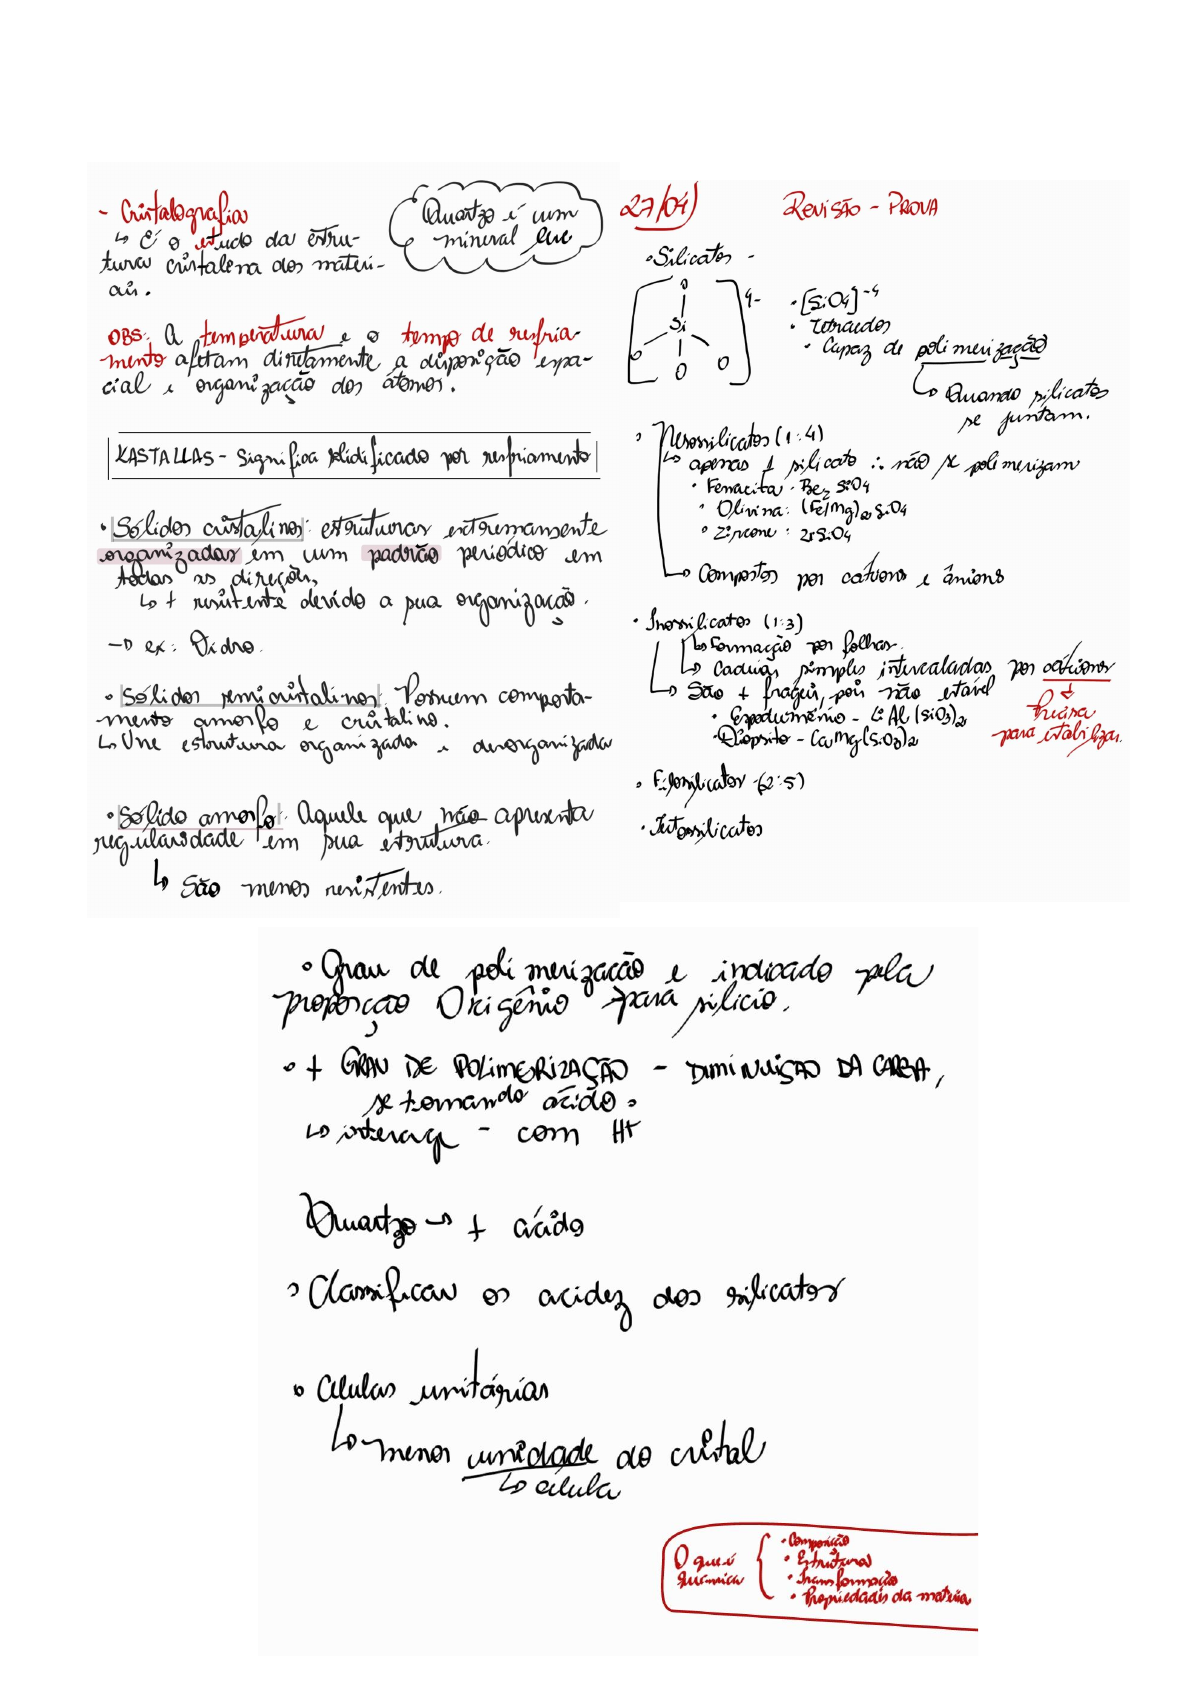 - Cristalografia
↳ É o estudo da estru-
tura cristalena dos materi-
ais.
Quartzo é um
mineral
OBS: A temperatura e o tempo de resfria-
mento afetam diretamente a disposição espa-
cial e organização dos átomos.
KASTALLAS - Significa solidificado por resfriamento
• Sólidos cristalinos: estruturas extremamente
organizadas em um padrão periódico em
todas as direções,
↳ + resistente devido a sua organização.
→ ex: Vidro.
• Sólidos semicristalinos: Possuem comporta-
mento amorfo e cristalino.
↳ Une estrutura organizada e desorganizada
• Sólido amorfo: Aquele que não apresenta
regularidade em sua estrutura.
↳ São menos resistentes.
27/04) Revisão - PROVA
• Silicatos -
O
Si
O O O
4-
• [SiO4]⁻⁴
• Tetraedos
• Capaz de polimerização
↳ Quando silicatos
se juntam.
• Nesossilicatos (1:4)
↳ apenas 1 silicato ∴ não se polimerizam
• Fenacita - Be2 SiO4
• Olivina: (Fe/Mg)2 SiO4
• Zircone: ZrSiO4
↳ Compostos por cátions e ânions
• Inossilicatos (1:3)
↳ Formação por folhas.
↳ Cadeias simples intercaladas por cátions
↳ São + frageis, pois não estável
↓
Precisa
para estabilizar.
• Espodumênio - Li Al (SiO3)2
• Diopsito - CaMg(SiO3)2
• Filossilicatos - (2:5)
• Tectossilicatos
• Grau de polimerização e indicado pela
proporção Oxigênio para silicio.
• + GRAU DE POLIMERIZAÇÃO - DIMINUIÇÃO DA CARGA,
se tornando ácido.
↳ interage - com H+
Quartzo → + ácido
• Classificar os acidez dos silicatos
• Células unitárias
↳ menor unidade do cristal
↳ célula
O que é
química
• Composição
• Estrutura
• Transformação
• Propriedades da matéria